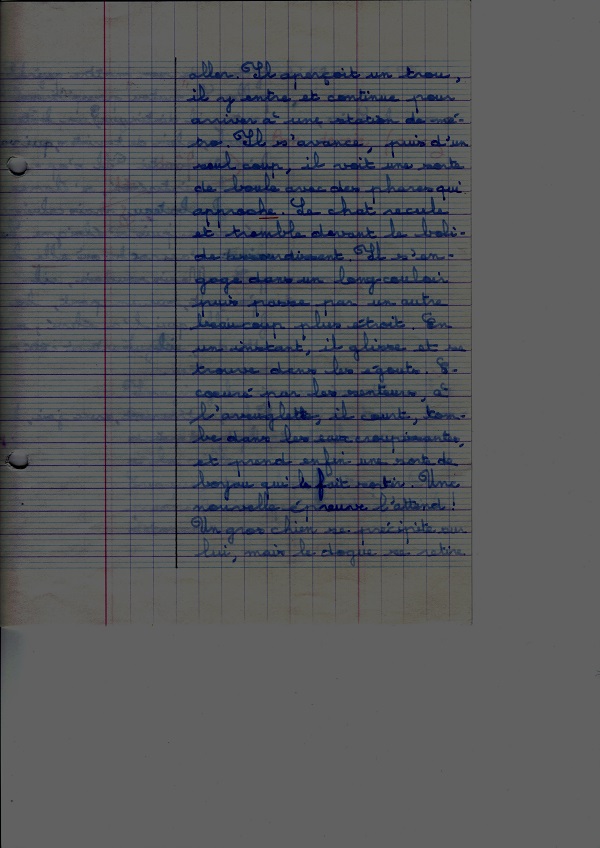 aller. Il aperçoit un trou,
il y entre, et continue pour
arriver à une station de mé-
tro. Il s'avance, puis d'un
seul coup, il voit une sorte
de boule avec des phares qui
approche. Le chat recule
et tremble devant le boli-
de Il s'en-
gage dans un long couloir
puis passe par un autre
beaucoup plus étroit. En
un instant, il glisse et se
trouve dans les égouts. É-
coeuré par les senteurs, à
l'aveuglette, il court, tom-
be dans les eaux croupissantes,
et prend enfin une sorte de
boyau qui le fait sortir. Une
nouvelle épreuve l'attend!
Un gros chien se précipite sur
lui, mais le dogue se retire